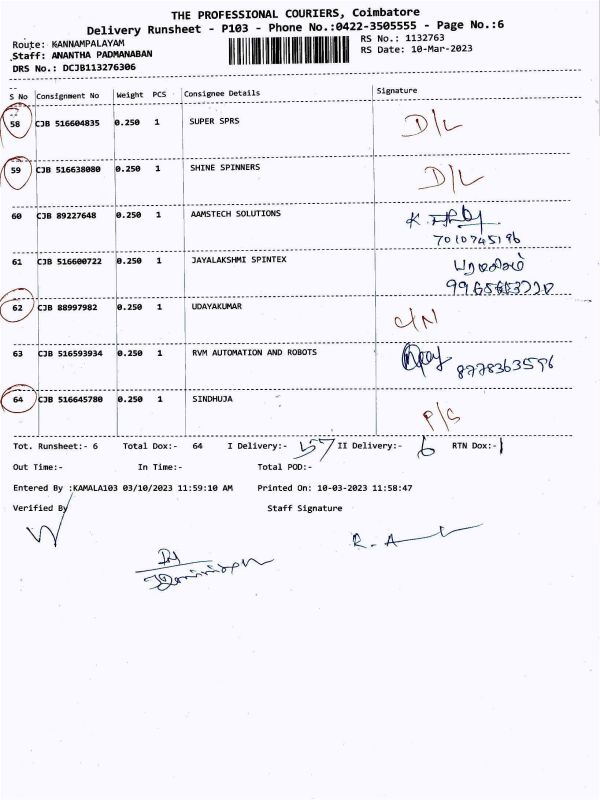 THE PROFESSIONAL COURIERS, Coimbatore
Delivery Runsheet - P103 - Phone No.:0422-3505555 - Page No.:6
Route: KANNAMPALAYAM
RS No.: 1132763
Staff: ANANTHA PADMANABAN
RS Date: 10-Mar-2023
DRS No.: DCJB113276306
S No Consignment No Weight PCS Consignee Details Signature
58 CJB 516604835 0.250 1 SUPER SPRS D/L
59 CJB 516638080 0.250 1 SHINE SPINNERS D/L
60 CJB 89227648 0.250 1 AAMSTECH SOLUTIONS K.
7010745196
61 CJB 516600722 0.250 1 JAYALAKSHMI SPINTEX
62 CJB 88997982 0.250 1 UDAYAKUMAR C/N
63 CJB 516593934 0.250 1 RVM AUTOMATION AND ROBOTS 8778363596
64 CJB 516645780 0.250 1 SINDHUJA P/S
Tot. Runsheet:- 6 Total Dox:- 64 I Delivery:- 57 II Delivery:- 6 RTN Dox:- 1
Out Time:- In Time:- Total POD:-
Entered By :KAMALA103 03/10/2023 11:59:10 AM Printed On: 10-03-2023 11:58:47
Verified By Staff Signature
R. A